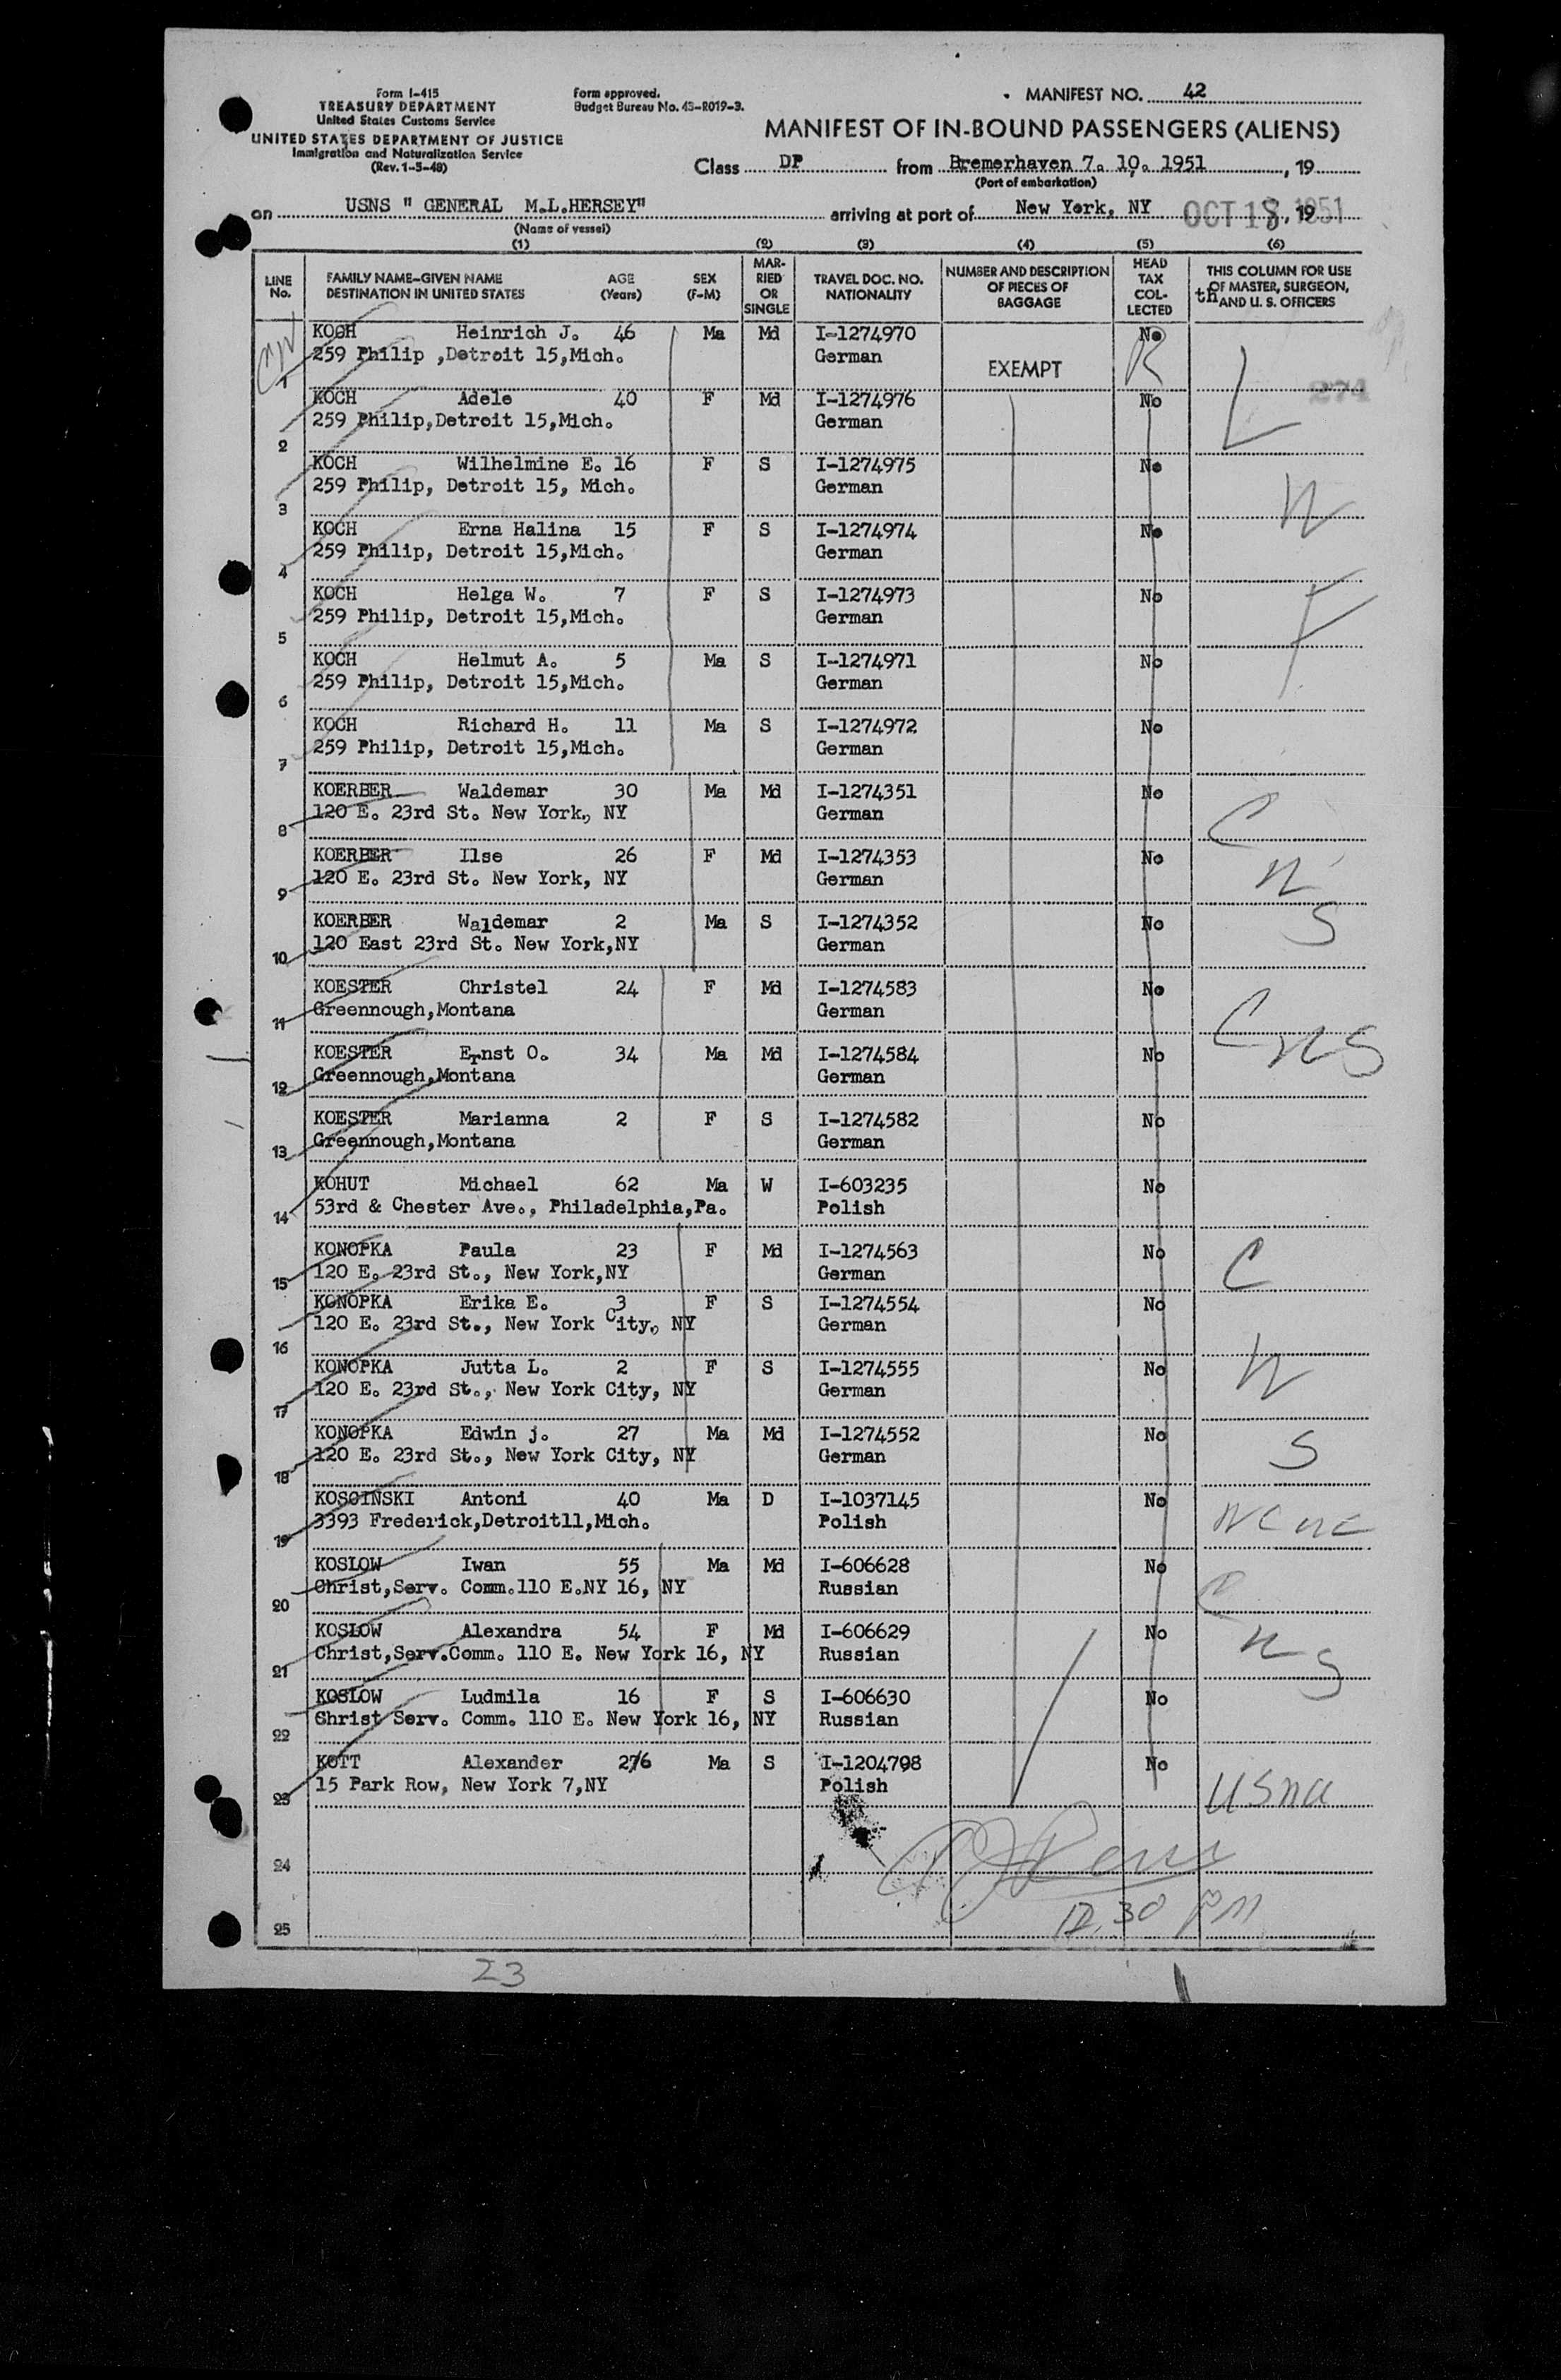 Form I-415
TREASURY DEPARTMENT
United States Customs Service
UNITED STATES DEPARTMENT OF JUSTICE
Immigration and Naturalization Service
(Rev. 1-5-48)
Form approved.
Budget Bureau No. 43-R019-3.
MANIFEST NO. 42
MANIFEST OF IN-BOUND PASSENGERS (ALIENS)
Class DP from Bremerhaven 7. 10. 1951, 19
(Port of embarkation)
on USNS " GENERAL M.L.HERSEY" arriving at port of New York, NY OCT 18 1951, 19
(Name of vessel)
(1) (2) (3) (4) (5) (6)
LINE No. FAMILY NAME-GIVEN NAME DESTINATION IN UNITED STATES AGE (Years) SEX (F-M) MARRIED OR SINGLE TRAVEL DOC. NO. NATIONALITY NUMBER AND DESCRIPTION OF PIECES OF BAGGAGE HEAD TAX COLLECTED THIS COLUMN FOR USE OF MASTER, SURGEON, AND U. S. OFFICERS
th
KOCH Heinrich J. 46 Ma Md I-1274970 No
259 Philip ,Detroit 15,Mich. German EXEMPT R
1 L 274
KOCH Adele 40 F Md I-1274976 No
259 Philip,Detroit 15,Mich. German
2
KOCH Wilhelmine E. 16 F S I-1274975 No
259 Philip, Detroit 15, Mich. German
3 N
KOCH Erna Halina 15 F S I-1274974 No
259 Philip, Detroit 15,Mich. German
4
KOCH Helga W. 7 F S I-1274973 No
259 Philip, Detroit 15,Mich. German
5 F
KOCH Helmut A. 5 Ma S I-1274971 No
259 Philip, Detroit 15,Mich. German
6
KOCH Richard H. 11 Ma S I-1274972 No
259 Philip, Detroit 15,Mich. German
7
KOERBER Waldemar 30 Ma Md I-1274351 No
120 E. 23rd St. New York, NY German
8 C
KOERBER Ilse 26 F Md I-1274353 No
120 E. 23rd St. New York, NY German
9 N
KOERBER Waldemar 2 Ma S I-1274352 No
120 East 23rd St. New York,NY German
10 S
KOESTER Christel 24 F Md I-1274583 No
Greennough,Montana German
11 C
KOESTER Ernst O. 34 Ma Md I-1274584 No
Greennough,Montana German
12 NS
KOESTER Marianna 2 F S I-1274582 No
Greennough,Montana German
13
KOHUT Michael 62 Ma W I-603235 No
53rd & Chester Ave., Philadelphia,Pa. Polish
14
KONOPKA Paula 23 F Md I-1274563 No
120 E. 23rd St., New York,NY German
15 C
KONOPKA Erika E. 3 F S I-1274554 No
120 E. 23rd St., New York City, NY German
16
KONOPKA Jutta L. 2 F S I-1274555 No
120 E. 23rd St., New York City, NY German
17 N
KONOPKA Edwin j. 27 Ma Md I-1274552 No
120 E. 23rd St., New York City, NY German
18 S
KOSCINSKI Antoni 40 Ma D I-1037145 No
3393 Frederick,Detroit11,Mich. Polish
19 NCWC
KOSLOW Iwan 55 Ma Md I-606628 No
Christ,Serv. Comm.110 E.NY 16, NY Russian
20 C
KOSLOW Alexandra 54 F Md I-606629 No
Christ,Serv.Comm. 110 E. New York 16, NY Russian
21 N S
KOSLOW Ludmila 16 F S I-606630 No
Shrist Serv. Comm. 110 E. New York 16, NY Russian
22
KOTT Alexander 27/6 Ma S I-1204798 No
15 Park Row, New York 7,NY Polish
23 USNA
24
12.30 PM
25
23